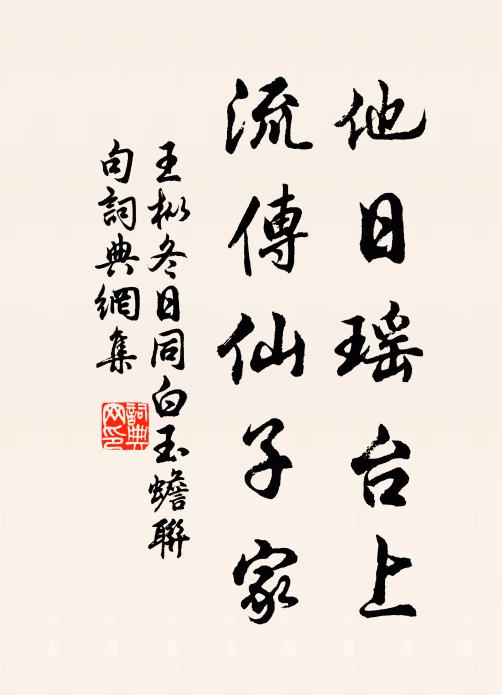 他日瑶台上
流傳仙子家
王枞冬日同白玉蟾聯
句詞典網集
詞典
网印